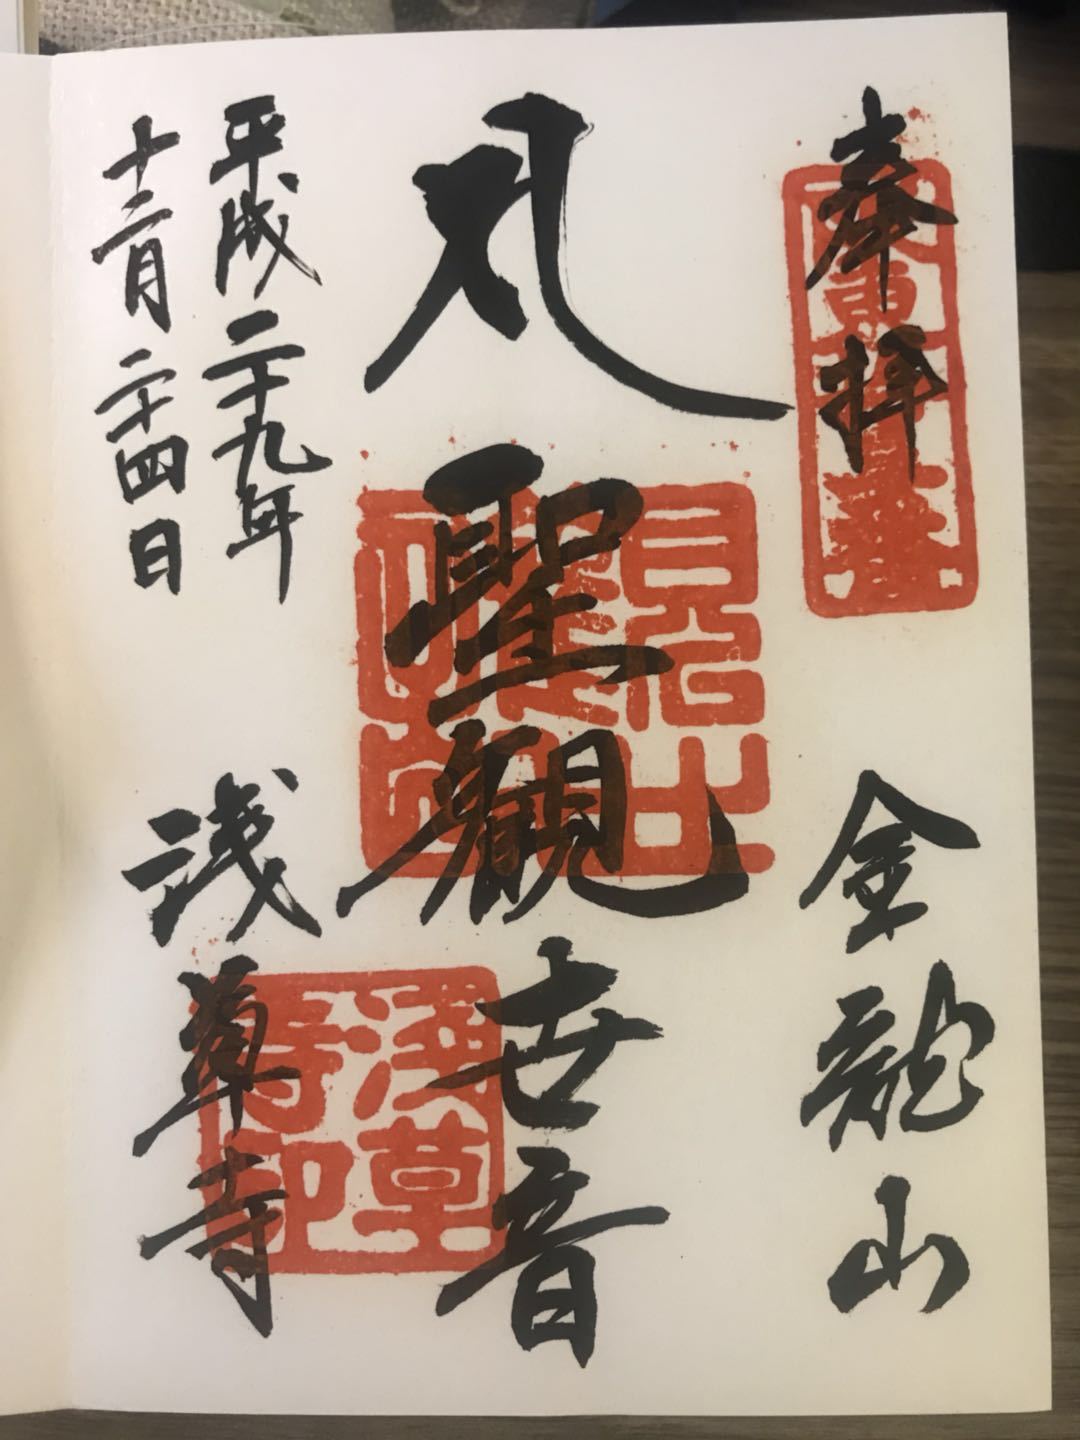 奉拝
金龍山
聖観世音
平成二十九年
十二月二十四日
浅草寺
浅草寺印